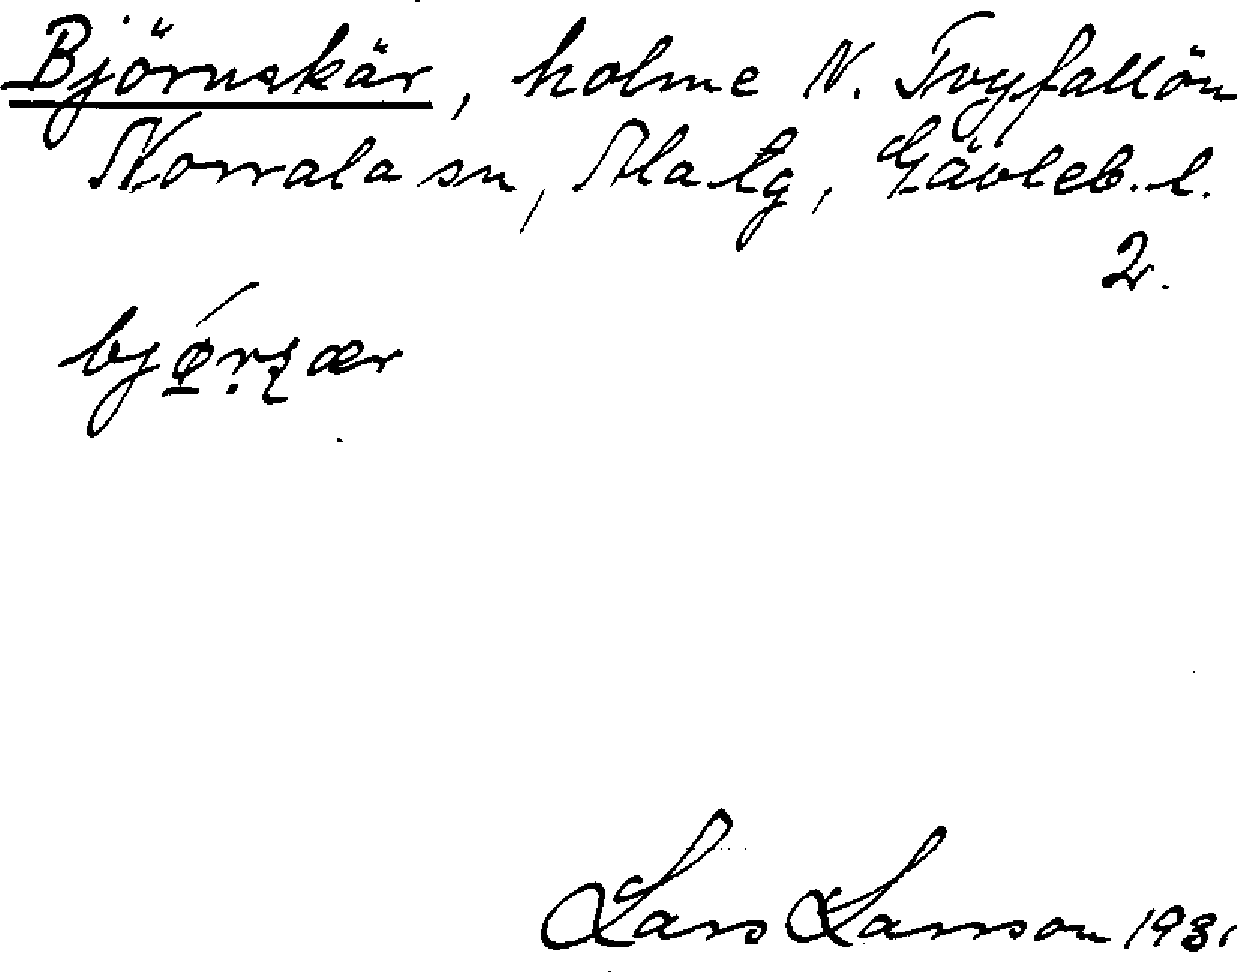 Björnskär, holme N. Tvyfallön
Norrala sn, Ala tg, Gävleb. l.
2.
Lars Larsson 1931